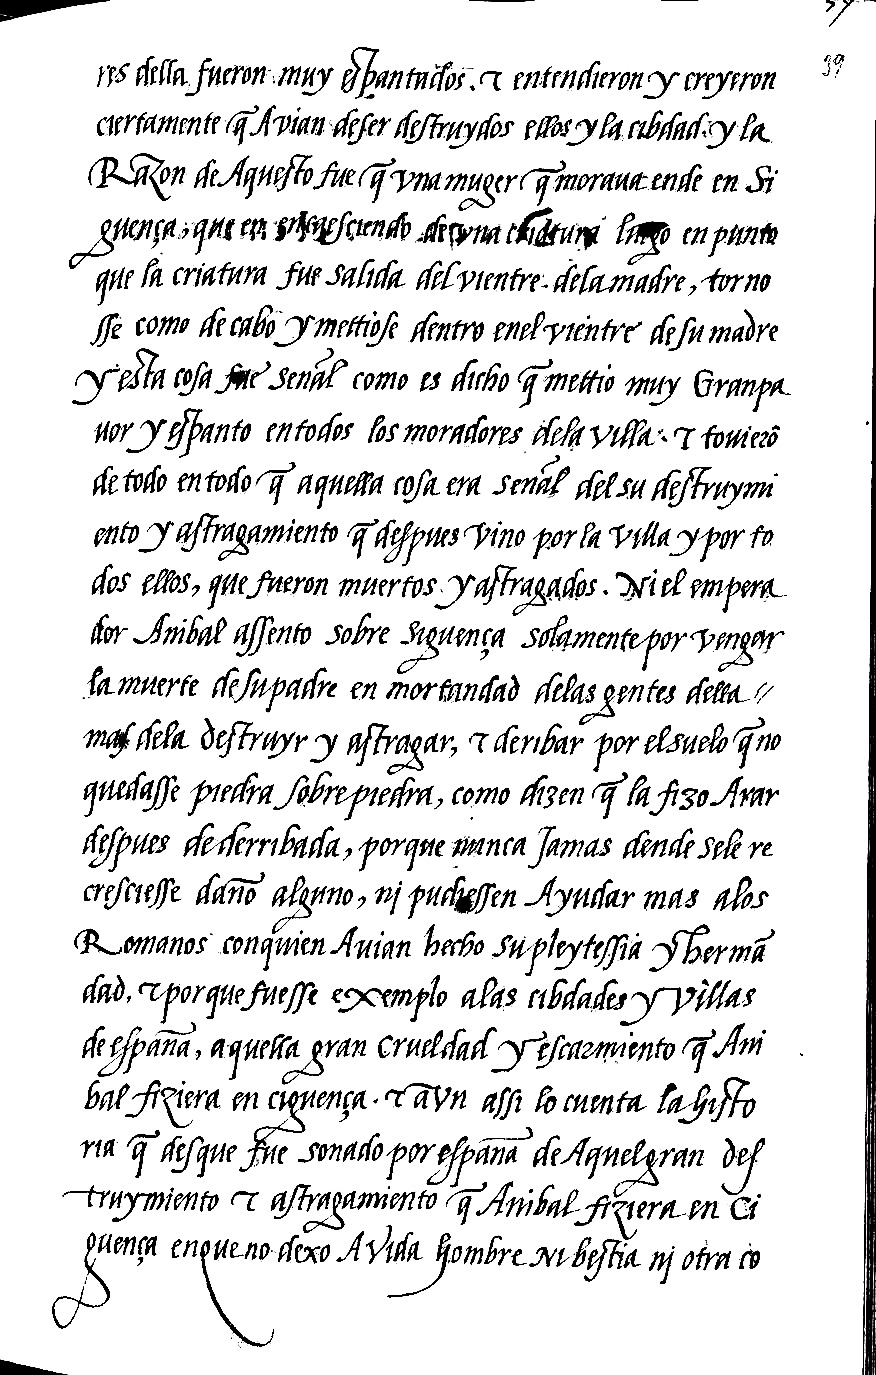 39
res della fueron muy espantados. τ entendieron y creyeron
ciertamente q̃ Avian deser destruydos ellos y la cibdad. y la
Razon de Aquesto fue q̃ vna muger q̃ moraua ende en Si
guença, que en encaesciendo de vna criatura luego en punto
que la criatura fue salida del vientre dela madre, torno
sse como de cabo y mettiose dentro enel vientre de su madre
y esta cosa fue señal como es dicho q̃ mettio muy Granpa
uor y espanto entodos los moradores dela villa. τ touierõ
de todo entodo q̃ aquella cosa era señal del su destruymi
ento y astragamiento q̃ despues vino por la villa y por to
dos ellos, que fueron muertos y astragados. Ni el empera
dor Anibal assento sobre siguença solamente por vengar
la muerte desupadre en mortandad delas gentes della //
mas dela destruyr y astragar, τ deribar por elsuelo q̃ no
quedasse piedra sobre piedra, como dizen q̃ la fizo Arar
despues de derribada, porque nunca Jamas dende sele re
cresciesse daño alguno, nj pudiessen Ayudar mas alos
Romanos conquien Avian hecho su pleytessia y hermã
dad. τ porque fuesse exemplo alas cibdades y villas
de españa, aquella gran crueldad y escarmiento q̃ Ani
bal fiziera en ciguença. τ aun assi lo cuenta la histo
ria q̃ desque fue sonado por españa de Aquel gran des
truymiento τ astragamiento q̃ Anibal fiziera en Ci
guença enque no dexo A vida hombre Ni bestia nj otra co